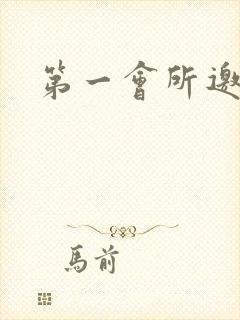 第一會所邀
馬前